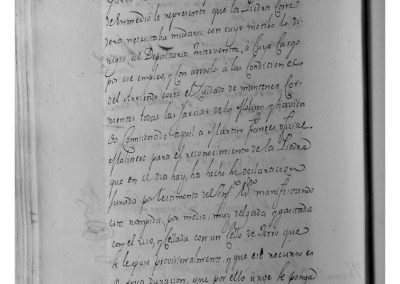 de Inmedio le represento que la Piedra Corre
dera necesitaba mudarse con cuyo motibo lo di
rigio al Depositario Interventor, à Cuyo Cargo
por ese empleo, y con arreglo à las Condiciones
del Arriendo corre el Cuidado de mantener Cor
rientes todas las farzias de los Molinos y havien
do Comisionado aquel à Martin frances, oficial
Molinero para el reconocimiento de la Piedra
que en el dia hay, ha hecho se declaracion
Jurada por testimonio del manifestando
esta rompida, por medio muy delgada y gastada
con el uso, y Cellada con un Cello de Fierro que
se le puso provisionalmente y que ese recurso es
de poca duracion, que por ello urge se ponga